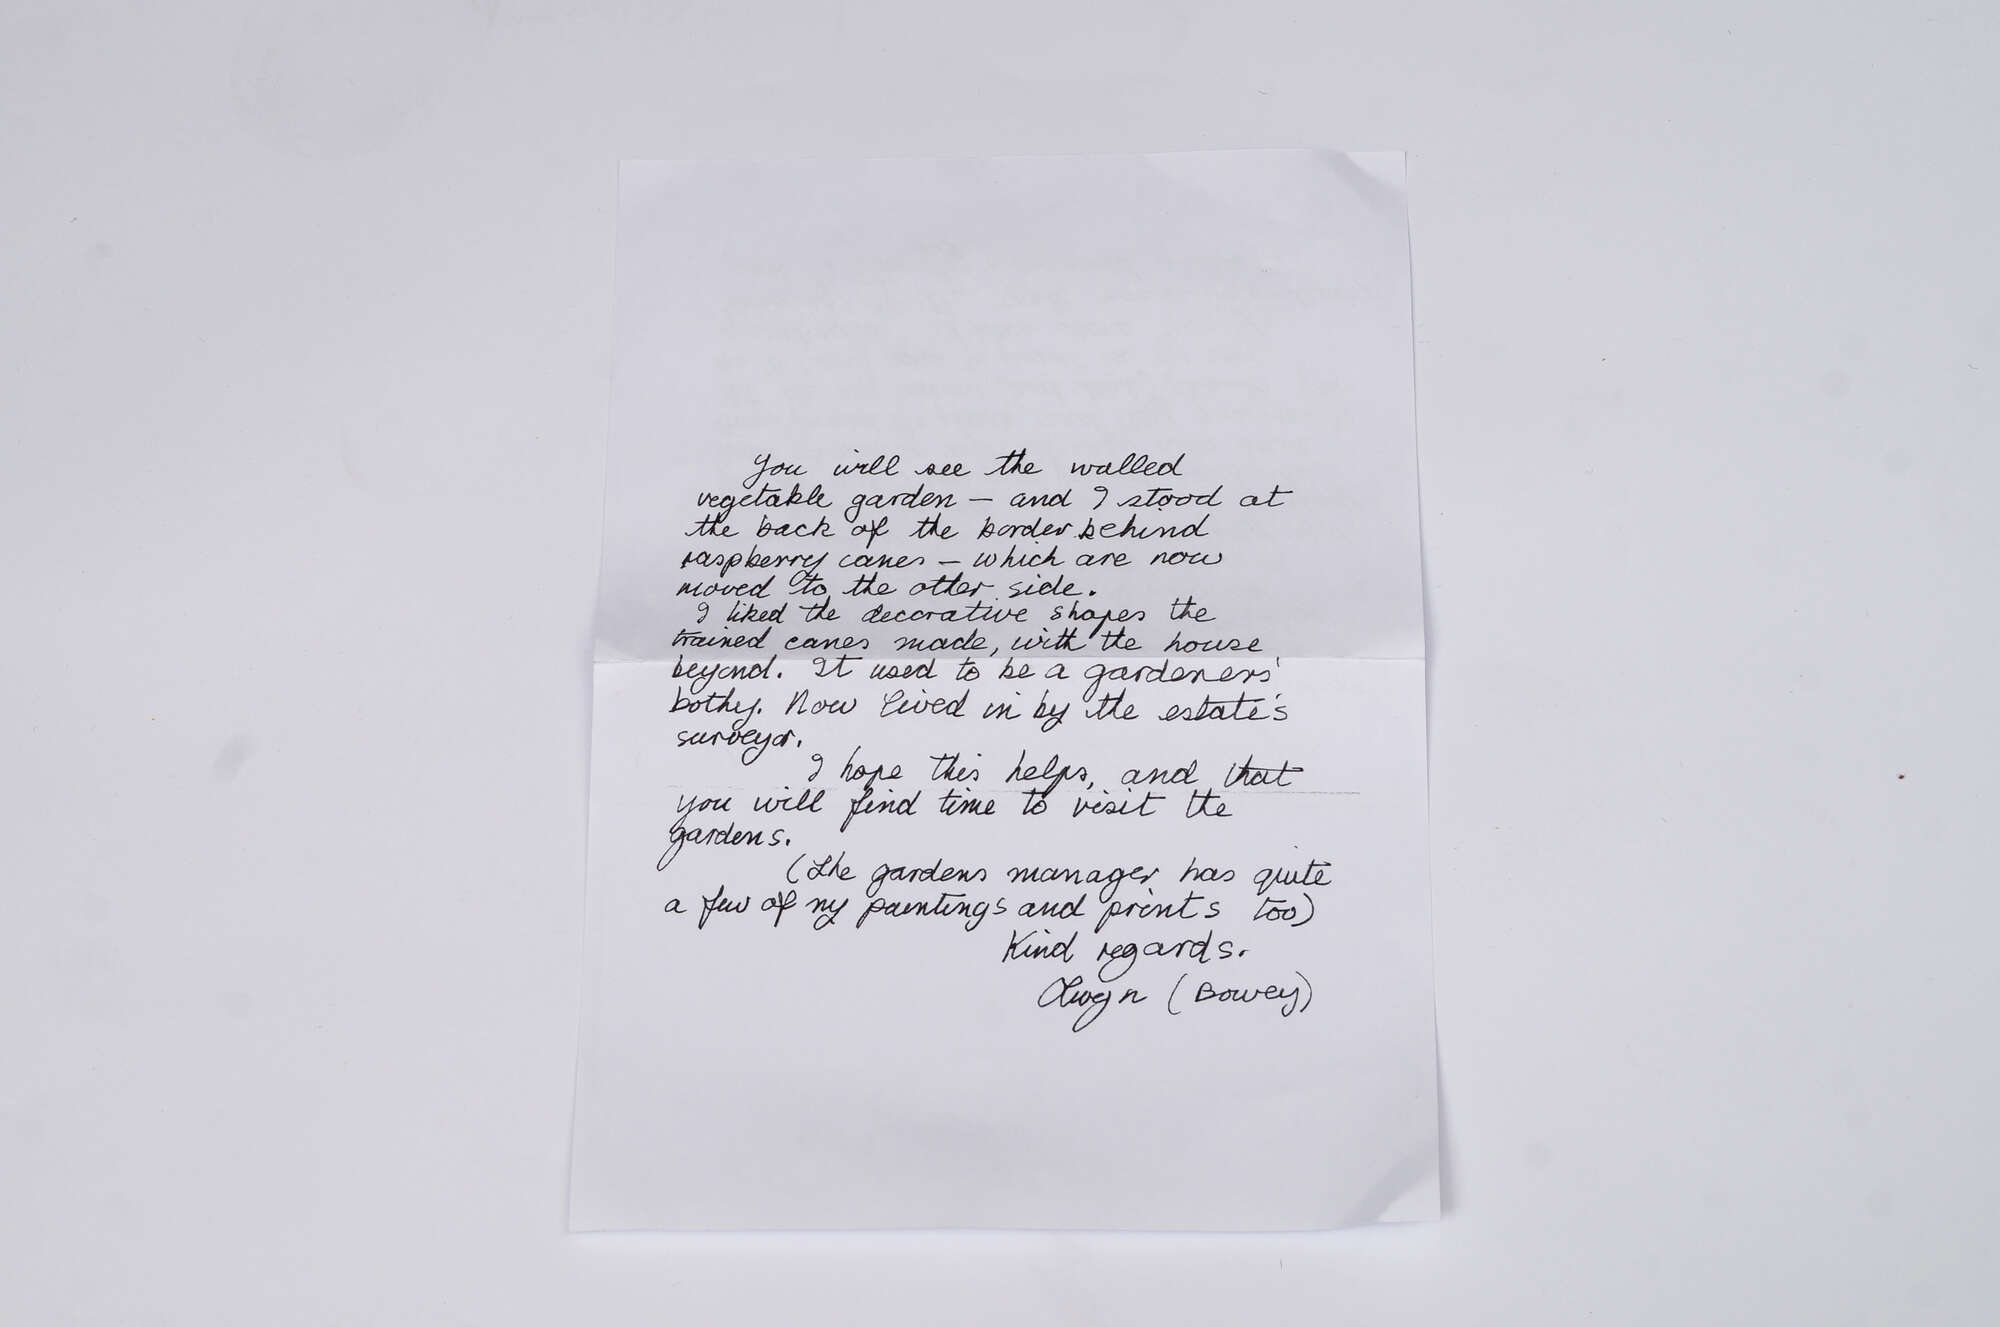 You will see the walled
vegetable garden – and I stood at
the back of the border behind
raspberry canes – which are now
moved to the other side.
I liked the decorative shapes the
trained canes made, with the house
beyond. It used to be a gardeners'
bothy. Now lived in by the estate's
surveyor.
I hope this helps, and that
you will find time to visit the
gardens.
(The gardens manager has quite
a few of my paintings and prints too)
Kind regards.
Olwyn (Bowey)